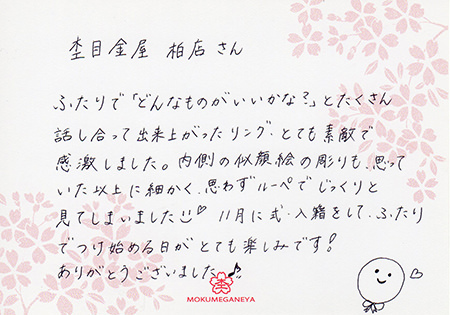 杢目金屋 柏店 さん
ふたりで「どんなものがいいかな?」とたくさん
話し合って出来上がったリング、とても素敵で
感激しました。内側の似顔絵の彫りも、思って
いた以上に細かく、思わずルーペでじっくりと
見てしまいました 11月に式・入籍をして、ふたり
でつけ始める日がとても楽しみです!
ありがとうございました♪
MOKUMEGANEYA